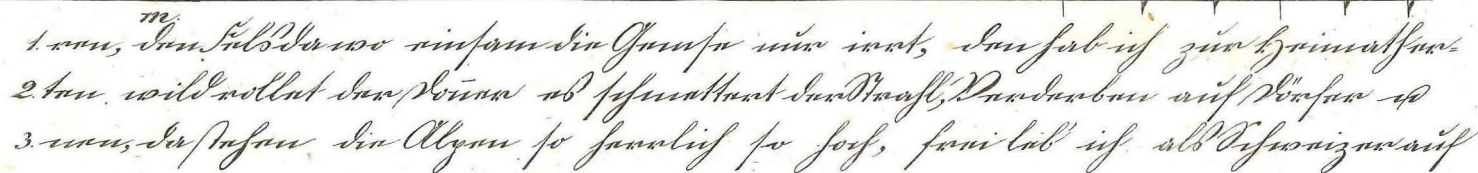 m.
1. ren, den Fels da wo einsam die Gemse nur irrt, den hab ich zur Heimath er-
2. ten. wild rollet der Doñer es schmettert der Strahl, Verderben auf Dörfer u
3. nen, da stehen die Alpen so herrlich so hoch, frei leb' ich als Schweizer auf